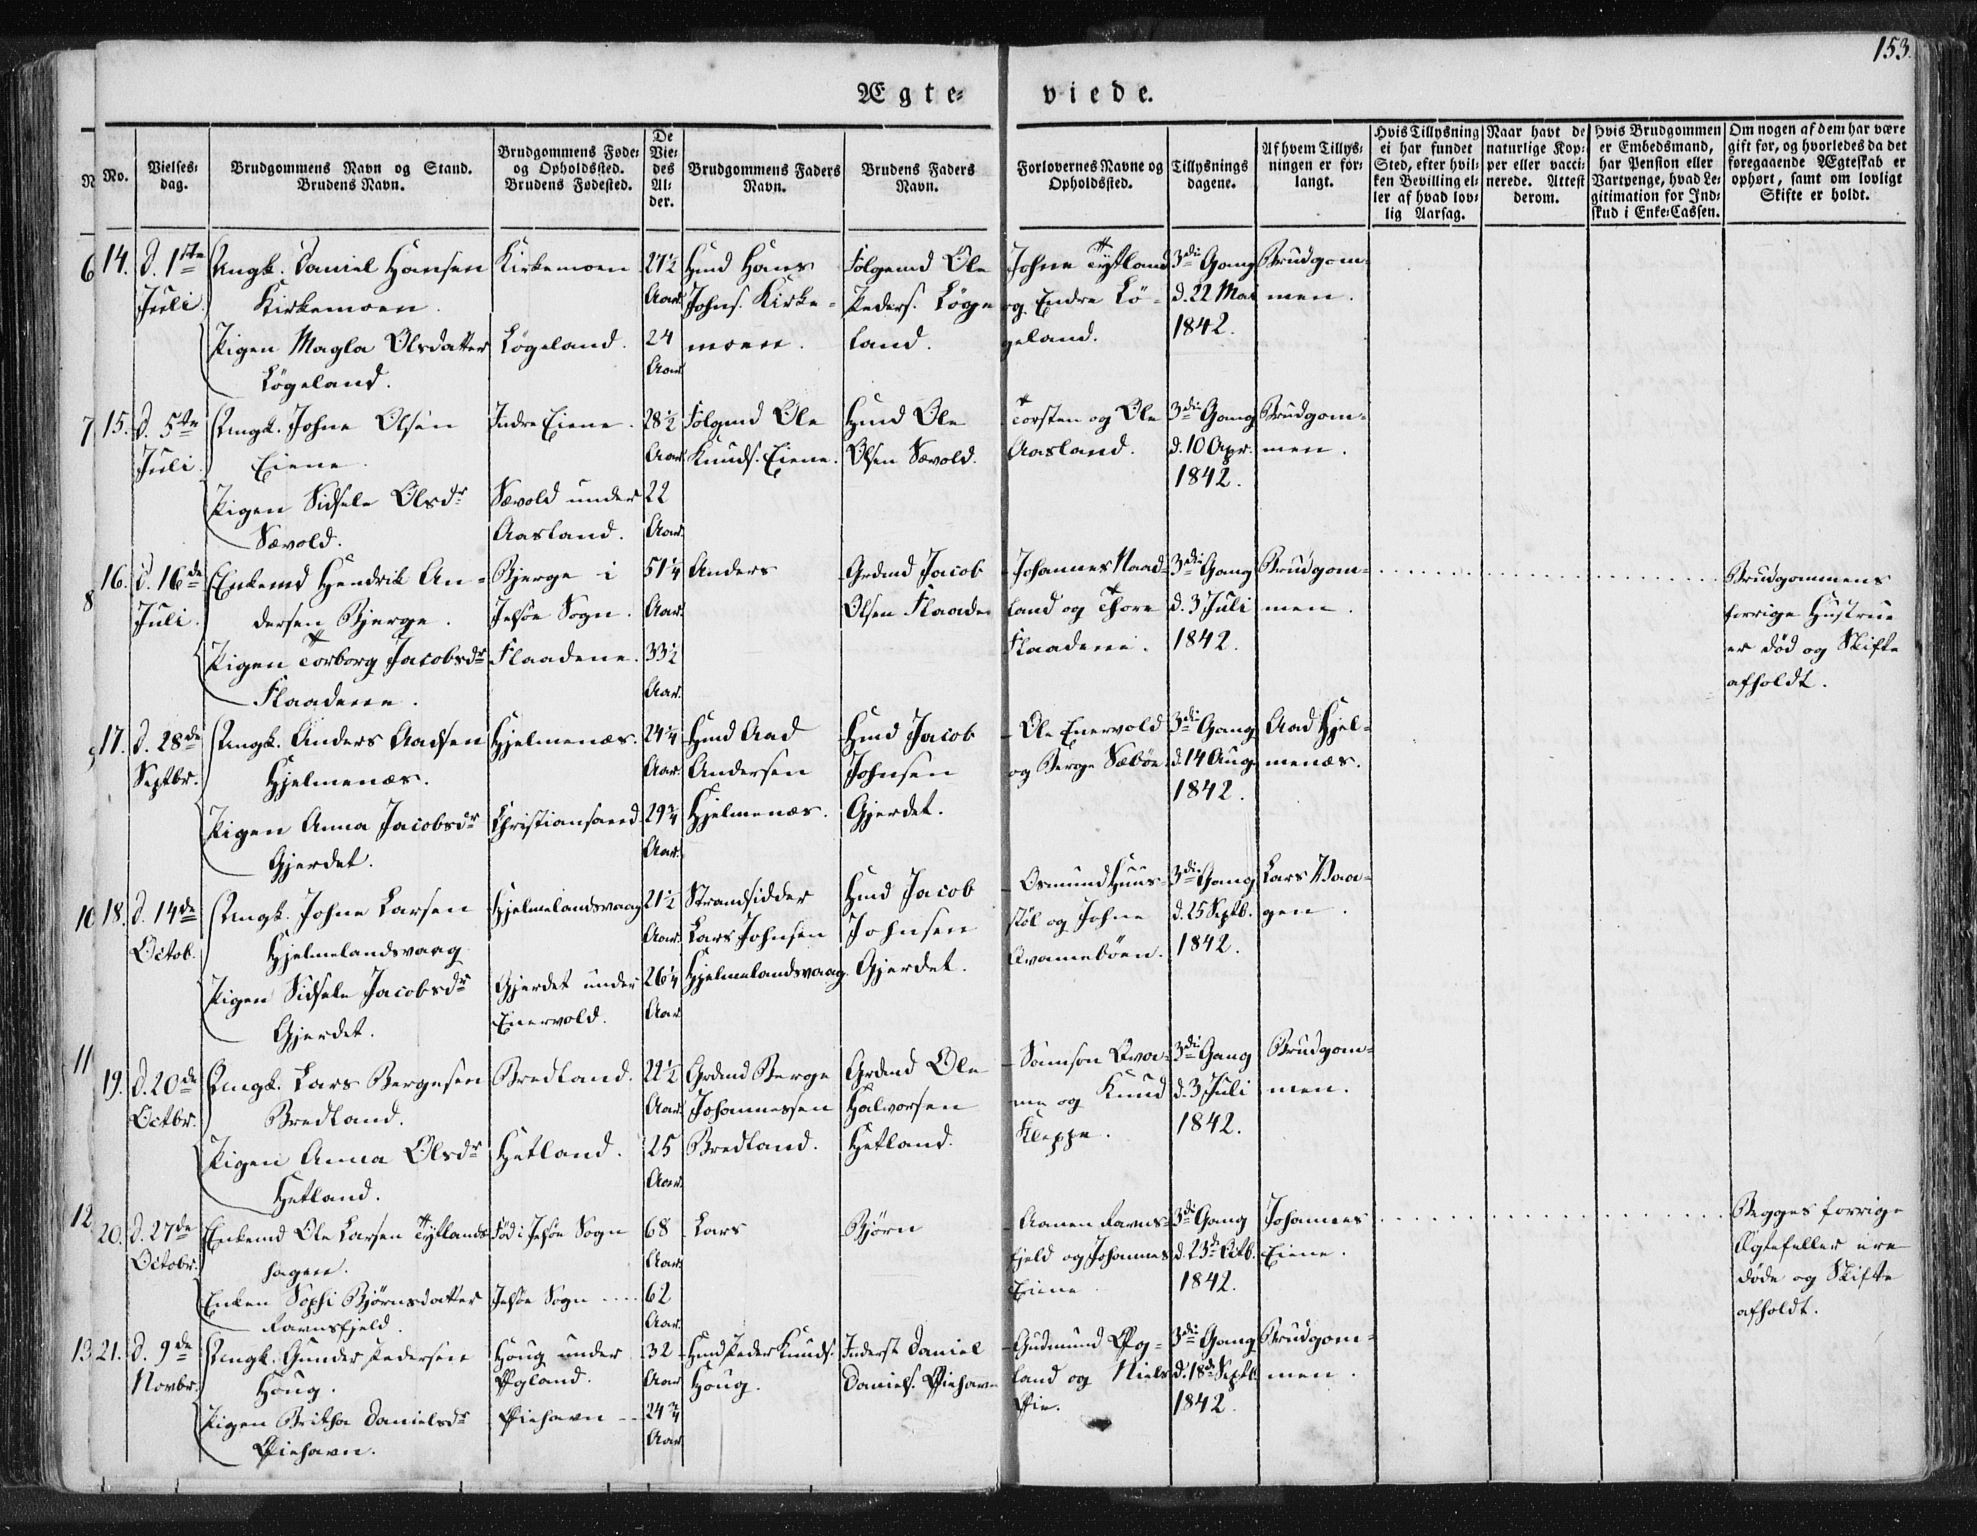 153.
Ægte= viede.
No.
Vielses=
dag.
Brudgommens Navn og Stand.
Brudens Navn.
Brudgommens Føde=
og Opholdssted.
Brudens Fødested.
De
Vie=
des
Al=
der.
Brudgommens Faders
Navn.
Brudens Faders
Navn.
Forlovernes Navne og
Opholdssted.
Tillysnings
dagene.
Af hvem Tillys=
ningen er for=
langt.
Hvis Tillysning
ei har fundet
Sted, efter hvil=
ken Bevilling el=
ler af hvad lov=
lig Aarsag.
Naar havt de
naturlige Kop=
per eller vacci=
nerede. Attest
derom.
Hvis Brudgommen
er Embedsmand,
har Pension eller
Vartpenge, hvad Le=
gitimation for Ind=
skud i Enke=Cassen.
Om nogen af dem har være
gift før, og hvorledes da det
foregaaende Ægteskab er
ophørt, samt om lovligt
Skifte er holdt.
6
14.
d. 1ste
Juli
Ungk. Daniel Hansen
Kirkemoen.
Pigen Magla Olsdatter
Løgeland.
Kirkemoen
Løgeland.
27½
Aar.
24
Aar.
Hmd Hans
Johns. Kirke=
moen.
Folgemd Ole
Peders. Løge
land.
Johne Tytland
og Endre Lø=
geland.
3die Gang
d. 22 Mai
1842.
Brudgom=
men.
7
15.
d. 5te
Juli.
Ungk. Johne Olsen
Eiene.
Pigen Sidsele Olsdr
Sævold.
Indre Eiene.
Sævold under
Aasland.
28½
Aar.
22
Aar.
Folgmd Ole
Knuds. Eiene.
Hmd Ole
Olsen Sævold.
Torsten og Ole
Aasland.
3die Gang
d. 10 Apr.
1842.
Brudgom=
men.
8
16.
d. 16de
Juli.
Enkemd Hendrik An=
dersen Bjerge.
Pigen Torborg Jacobsdr
Flaadene.
Bjerge i
Jelsøe Sogn.
Flaadene.
51¼
Aar.
33½
Aar.
Anders
Grdmd Jacob
Olsen Flaaden
Johannes Naad=
land og Thore
Flaadene.
3die Gang
d. 3 Juli
1842.
Brudgom=
men.
Brudgommens
forrige Hustrue
er død og Skifte
afholdt.
17.
d. 28de
Septbr.
Ungk. Anders Aadsen
Hjelmenæs.
Pigen Anna Jacobsdr
Gjerdet.
Hjelmenæs.
Christiansand.
24¼
Aar.
29¾
Aar.
Hmd Aad
Andersen
Hjelmenæs.
Hmd Jacob
Johnsen
Gjerdet.
Ole Enervold
og Berge Sæbøe.
3die Gang
d. 14 Aug.
1842.
Aad Hjel=
menæs.
10
18.
d. 14de
Octob.
Ungk. Johne Larsen
Hjelmelandsvaag
Pigen Sidsele Jacobsdr
Gjerdet.
Hjelmelandsvaag
Gjerdet under
Enervold.
21½
Aar.
26¼
Aar.
Strandsidder
Lars Johnsen
Hjelmelandsvaag.
Hmd Jacob
Johnsen
Gjerdet.
Osmund Huus=
støl og Johne
Qvamebøen.
3die Gang
d. 25 Septb.
1842.
Lars Vaa=
gen.
11
19.
d. 20de
Octbr.
Ungk. Lars Bergesen
Bredland.
Pigen Anna Olsdr
Hetland.
Bredland.
Hetland.
22½
Aar.
25
Aar.
Grdmd Berge
Johannessen
Bredland.
Grdmd Ole
Halvorsen
Hetland.
Samson Qva=
me og Knud
Kleppe.
3die Gang
d. 3 Juli
1842.
Brudgom=
men.
12
20.
d. 27de
Octobr.
Enkemd Ole Larsen Tytlands
hagen.
Enken Sophi Bjørnsdatter
Ravnsfjeld.
Fød i Jelsøe Sogn
Jelsøe Sogn
68
Aar.
62
Aar.
Lars
Bjørn
Aanen Ravns=
fjeld og Johannes
Eiene
3die Gang
d. 23de Octb.
1842.
Johannes
Eiene.
Begges forrige
Ægtefeller ere
døde og Skifte
afholdt.
13
21.
d. 9de
Novbr.
Ungk. Gunder Pedersen
Houg.
Pigen Britha Danielsdr
Øiehavn.
Houg under
Øgland.
Øiehavn
32
Aar
24¾
Aar.
Hmd Peder Knuds.
Houg.
Inderst Daniel
Daniels. Øiehavn
Gudmund Øg=
land og Niels
Øie.
3die Gang
d. 18de Septb.
1842.
Brudgom=
men.